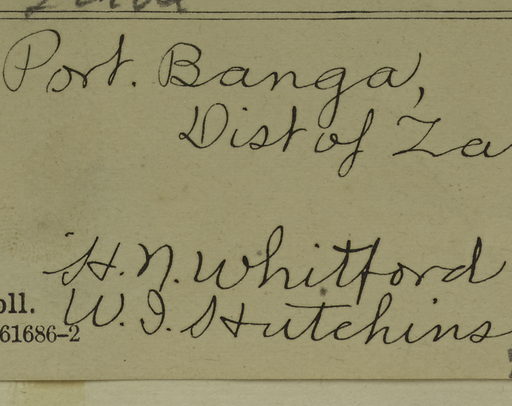 Port. Banga,
Dist of Za
H. N. Whitford
oll. W. I. Hutchins
61686–2